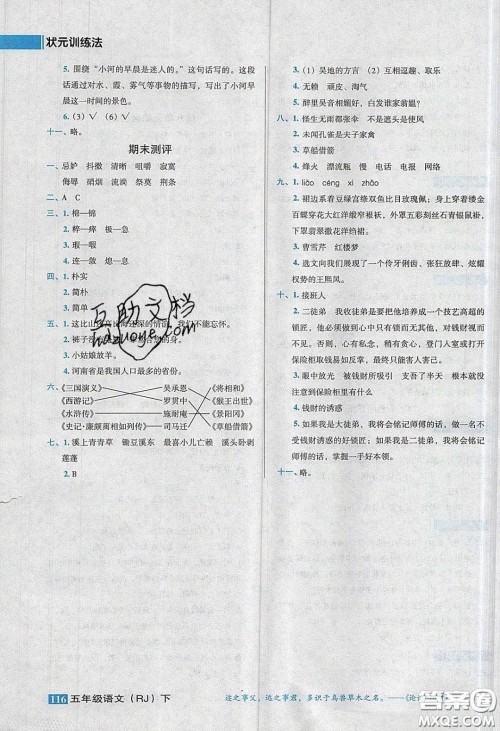 状元训练法
5. 围绕“小河的早晨是迷人的。”这句话写的。这
段话通过对水、霞、雾气等事物的描写，写出了小河早
晨这一时间的景色。
6. (3) √ (6) √
十一、略。
期末测评
一、忌妒 抖擞 清晰 咀嚼 寂寞
侮辱 硝烟 流苏 祭奠 荆条
二、A C
三、1. 棉—锦
2. 粹—瘁 极—急
3. 瑕—暇
4. 连—敛 熄—息
四、1. 朴实
2. 简朴
3. 朴素
五、1. 这比山还高比海还深的情谊，我们不能忘怀。
2. 裤子
3. 小姑娘放羊。
4. 河南省是我国人口最多的省份。
六、《三国演义》 吴承恩 《将相和》
《西游记》 罗贯中 《猴王出世》
《水浒传》 施耐庵 《景阳冈》
《史记·廉颇蔺相如列传》 司马迁 《草船借箭》
七、1. 溪上青青草 锄豆溪东 最喜小儿亡赖 溪头卧剥
莲蓬
2. B
3. (1) 吴地的方言 (2) 互相逗趣、取乐
4. 无赖 顽皮、淘气
5. 醉里吴音相媚好，白发谁家翁媪？
八、1. 怪生无雨都张伞 不是遮头是使风
2. 未闻孔雀是夫子家禽
3. 草船借箭
4. 烽火 漂流瓶 电报 电话 电子邮件
九、1. liǎo céng xì zhāo
2. 裙边系着豆绿宫绦双鱼比目玫瑰佩；身上穿着缕金
百蝶穿花大红洋缎窄裉袄，外罩五彩刻丝石青银鼠褂，
下罩翡翠撒花洋绉裙。
3. 曹雪芹 红楼梦
4. 选文向我们描述了一个伶牙俐齿、张狂放肆、炫耀
权势的王熙凤。
十、1. 接班人
2. 二徒弟 我收徒弟是要把他培养成一个技艺高超的
锁匠，他必须做到心中只有锁而无其他，对钱财视而
不见。否则，心有私念，稍有贪心，登门入室或打开
保险柜取钱易如反掌，最终只能害人害己。
3. 眼中放光 被钱财所吸引 百元钞票 因为他根本没
注意到保险柜里有什么
4. 钱财的诱惑
5. 如果我是大徒弟，我将会铭记师傅的话，做一个不
贪图钱财无私的好锁匠；如果我是二徒弟，我将会铭
记师傅的话，掌握一手好本领。
十一、略。
互助文档
hdzuoye.com
116 五年级语文（RJ）下
迩之事父，远之事君，多识于鸟兽草木之名。
作业精灵